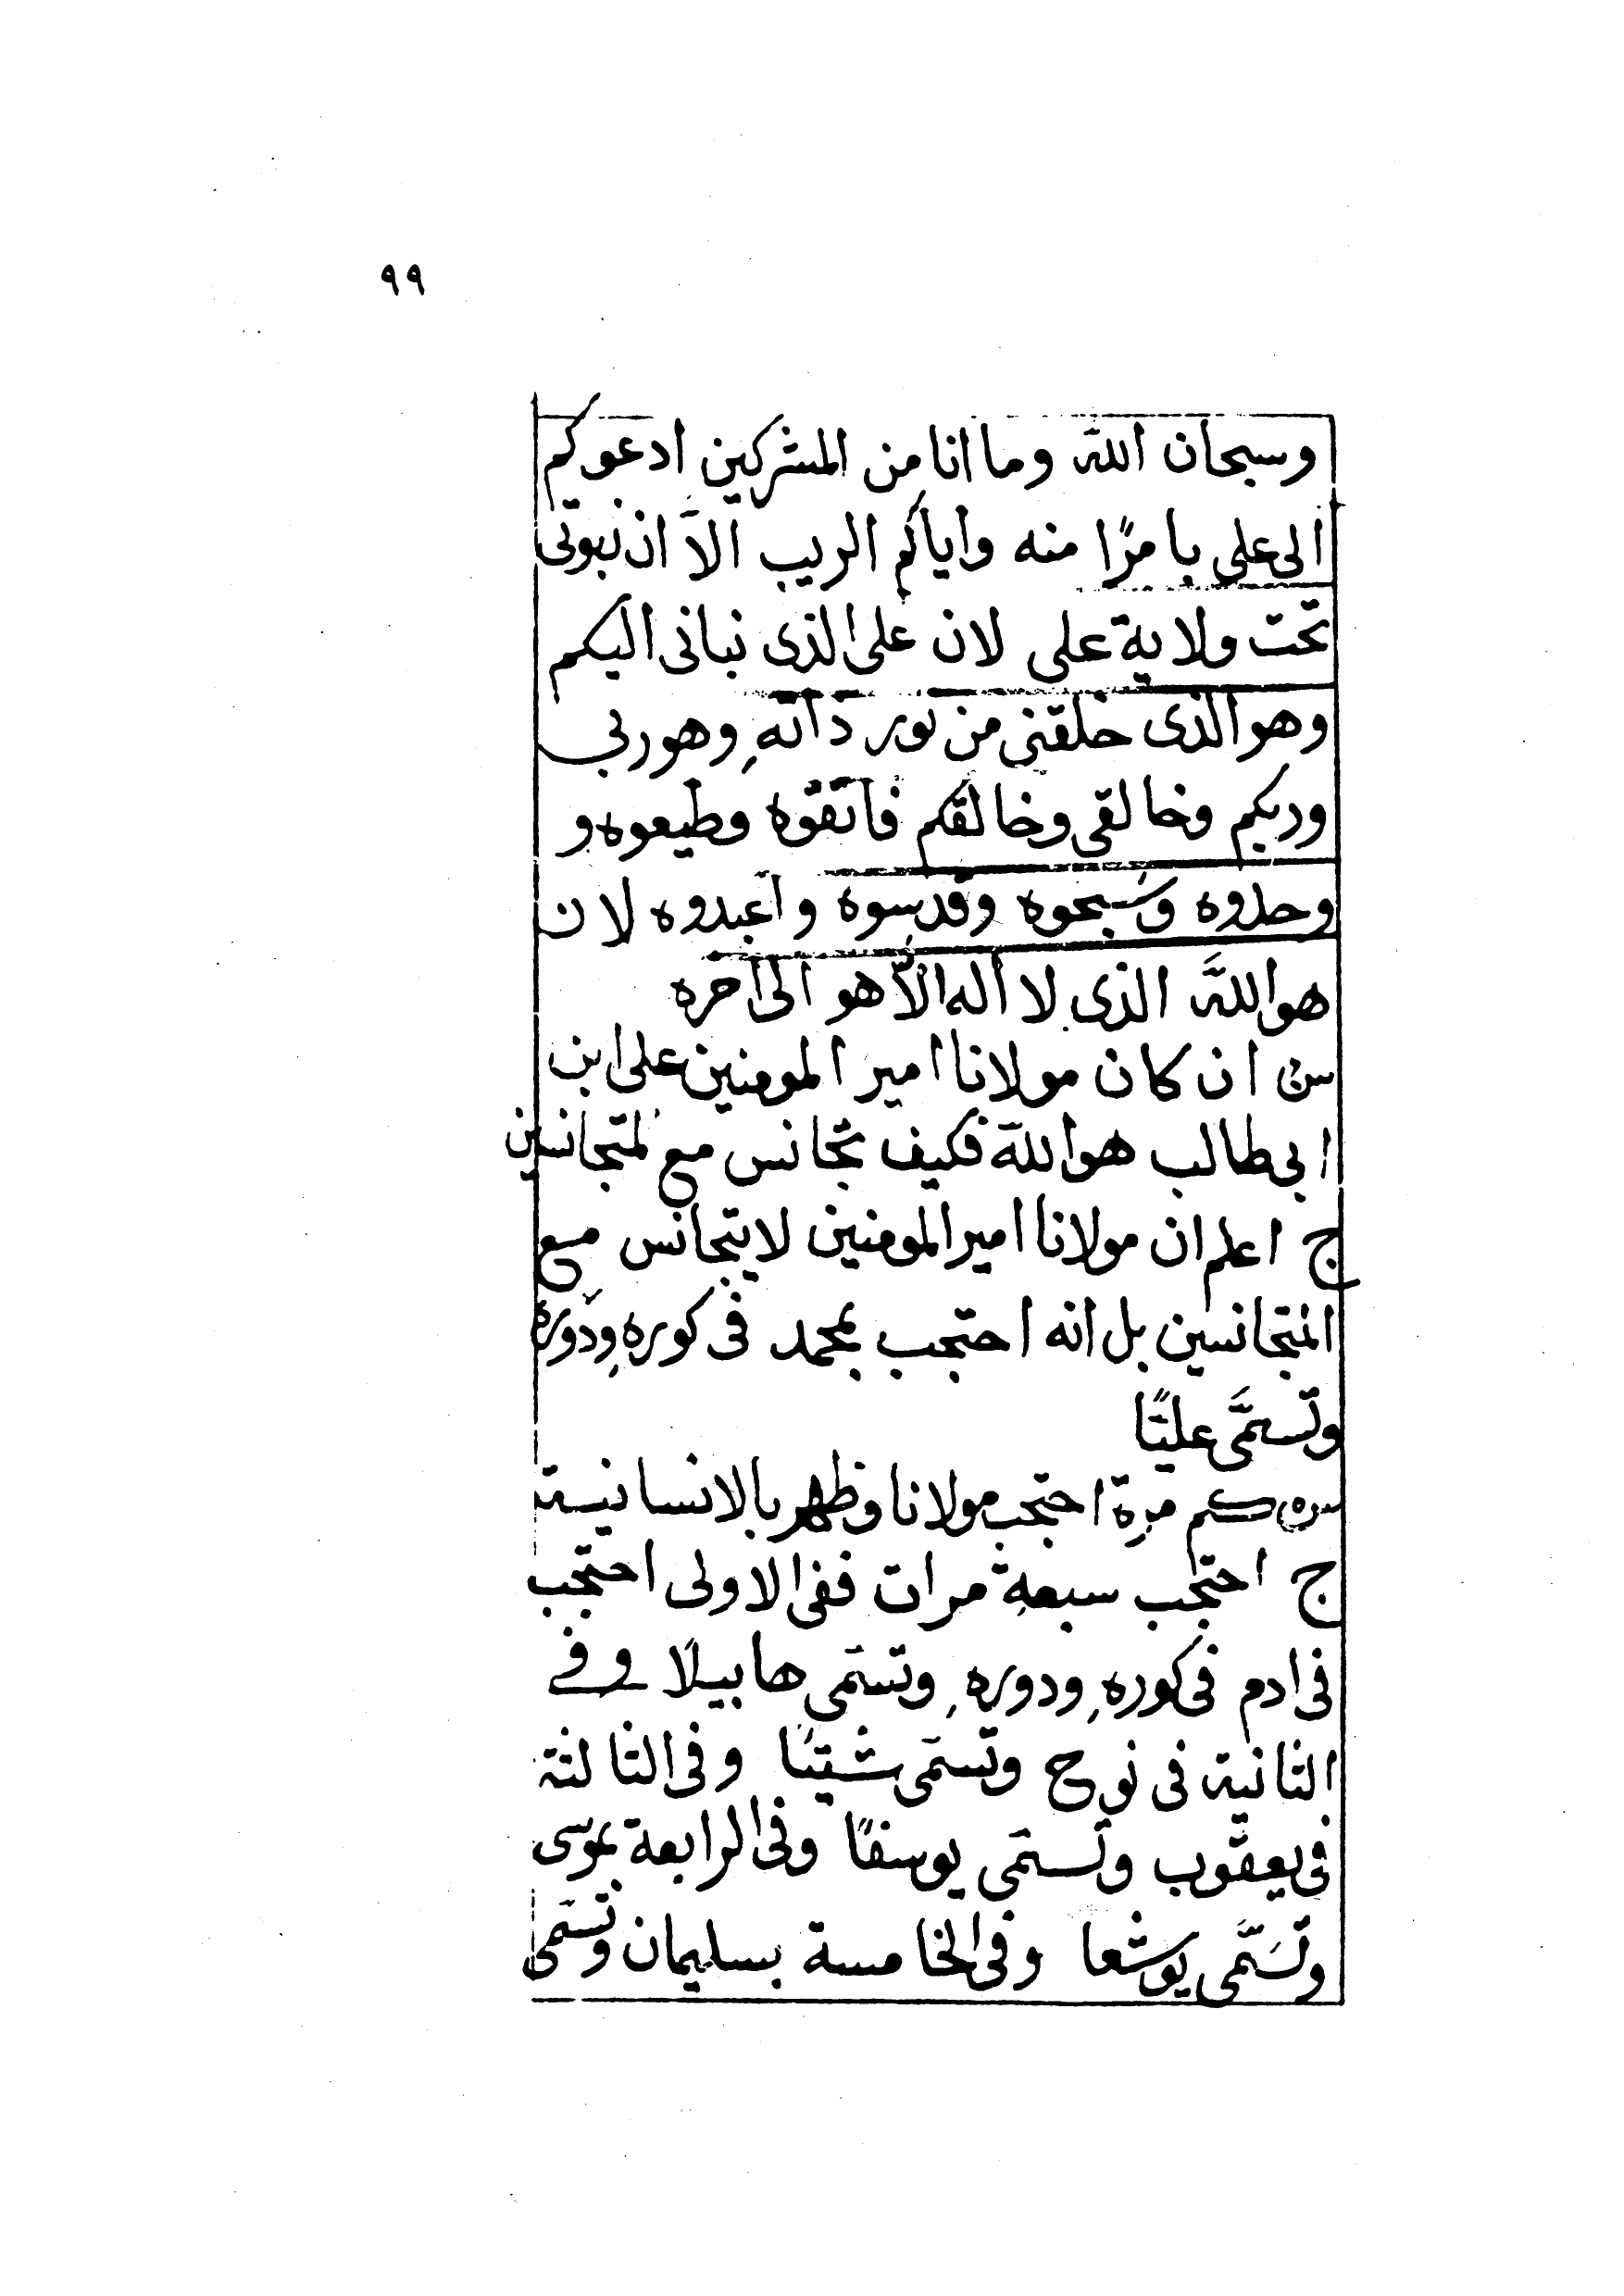 ٩٩
وسبحان الله وما انا من المشركين ادعوكم
الى على بامرًا منه واياكم الريب الاّ ان نبوتى
تحت ولاية على لان على الذى نبانى اليكم
وهو الذى خلقنى من نور ذاته وهو ربي
وربكم وخالقى وخالقكم فاتقوه وطيعوه و
وحدوه وسبحوه وقدسوه واعبدوه لان
هو اللهَ الذى لا اله الاّ هو الى اخره
س ان كان مولانا امير المومنين على ابن
ابى طالب هو الله فكيف تجانس مع المتجانسين
ج اعلم ان مولانا امير المومنين لا يتجانس مع
المتجانسين بل انه احتجب بمحمد فى كوره ودوره
وتسمَّى عليًّا
س كم مرة احتجب مولانا وظهر بالانسانية
ج احتجب سبعة مرات ففى الاولى احتجب
فى ادم فى كورهِ ودورهِ وتسمى هابيلا وفى
الثانية فى نوح وتسمى شيتًا وفى الثالثة
فى يعقوب وتسمى يوسفًا وفى الرابعة بموسى
وتسَمّى يوشعا وفى الخامسة بسليمان وتسمى